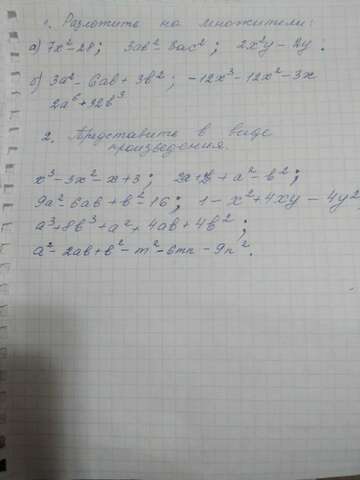 1. Разложите на множители:
а) 7x² - 28; 3ab² - 3ac²; 2x²y - 2y.
б) 3a² - 6ab + 3b²; -12x³ - 12x² - 3x
2a⁶ + 32b³
2. Представите в виде
произведения.
x³ - 3x² - x + 3; + a² - b²;
9a² - 6ab + b² - 16; 1 - x² + 4xy - 4y²
a³ + 8b³ + a² + 4ab + 4b²;
a² - 2ab + b² - m² - 6mn - 9n².